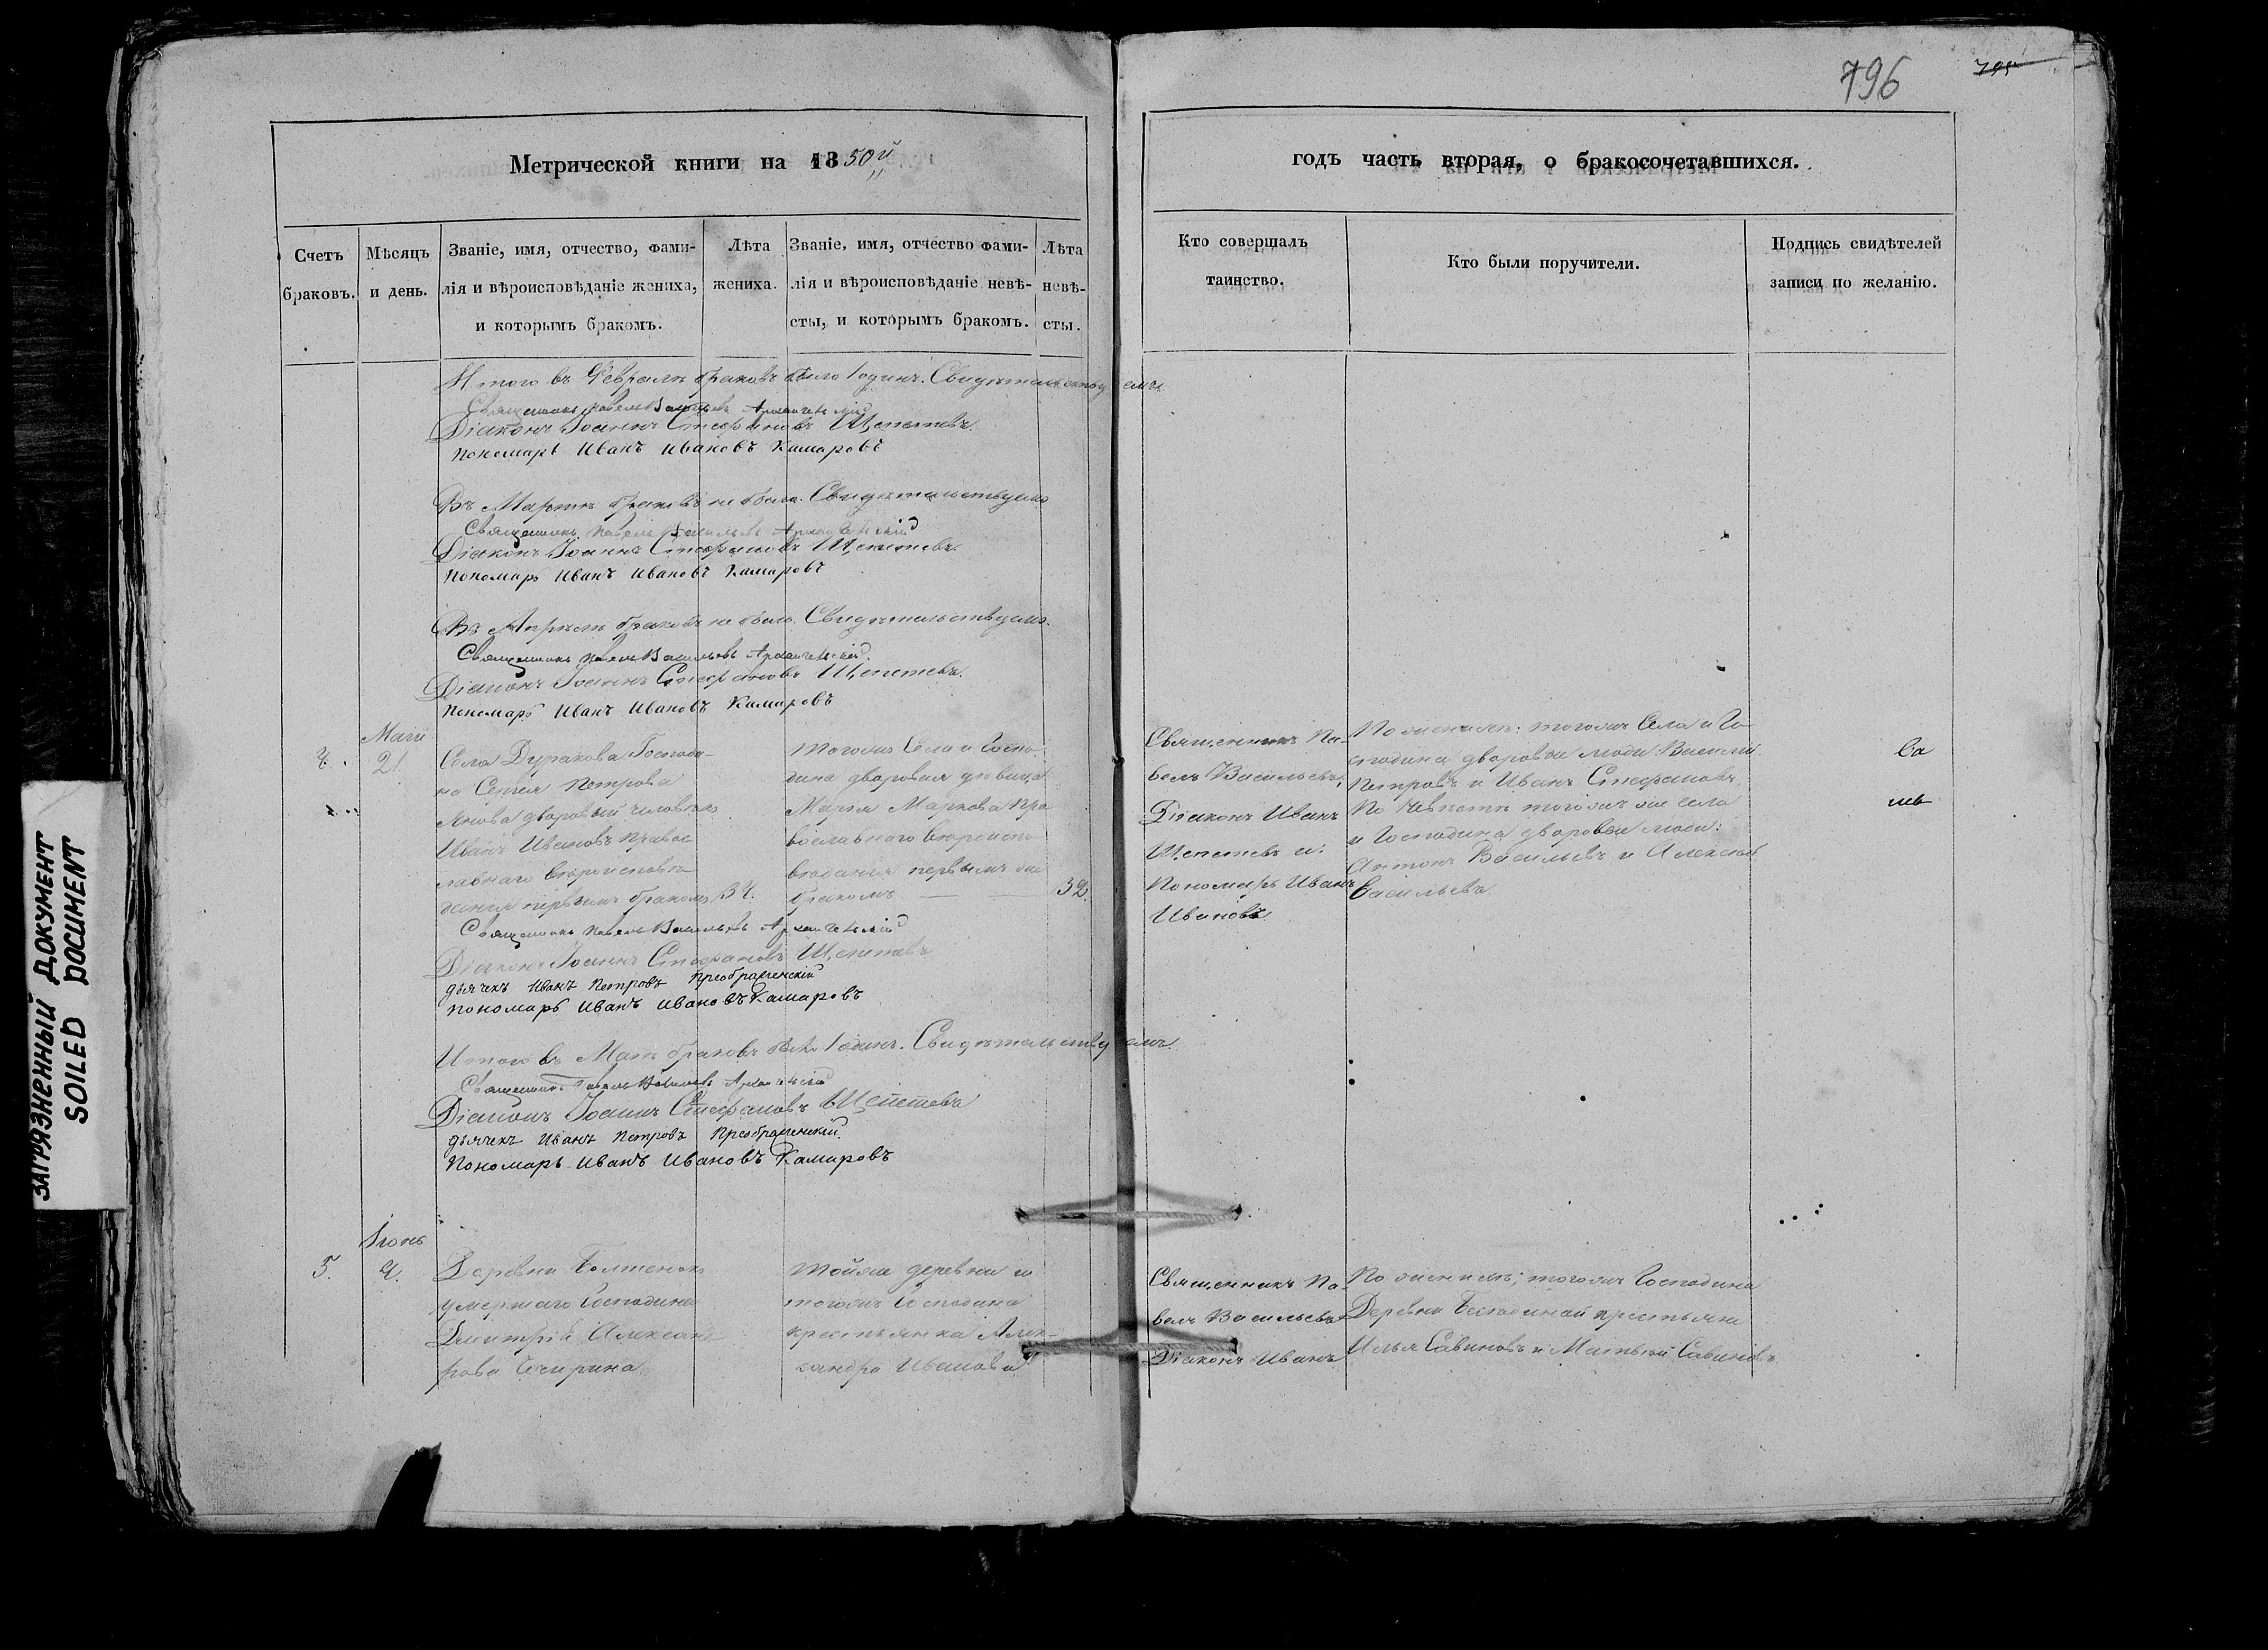 796
795
Метрической книги на 1850й
годъ часть вторая, о бракосочетавшихся.
Счетъ браковъ.
Мѣсяцъ и день.
Званіе, имя, отчество, фами-
лія и вѣроисповѣданіе жениха,
и которымъ бракомъ.
Лѣта
жениха.
Званіе, имя, отчество фами-
лія и вѣроисповѣданіе невѣ-
сты, и которымъ бракомъ.
Лѣта
невѣ-
сты.
Кто совершалъ
таинство.
Кто были поручители.
Подпись свидѣтелей
записи по желанію.
Итого въ Февралѣ браковъ было 1 одинъ. Свидѣтельствуемъ
Священникъ Павелъ Васильевъ Архангельскій
Діаконъ Іоаннъ Стефановъ Щепетевъ
Пономарь Иванъ Ивановъ Камаровъ
Въ Мартѣ браковъ не было. Свидѣтельствуемъ
Священникъ Павелъ Васильевъ Архангельскій
Діаконъ Іоаннъ Стефановъ Щепетевъ
Пономарь Иванъ Ивановъ Камаровъ
Въ Апрѣлѣ браковъ не было. Свидѣтельствуемъ.
Священникъ Павелъ Васильевъ Архангельскій
Діаконъ Іоаннъ Стефановъ Щепетевъ.
Пономарь Иванъ Ивановъ Камаровъ
Маія
4.
21.
Села Дуракова Господи-
на Сергія Петрова
дворовый человѣкъ
Иванъ Ивановъ правос
лавнаго вѣроисповѣ
данія первымъ бракомъ
34.
Тогожъ Села и Госпо
дина дворовая дѣвица
Марія Маркова пра
вославнаго вѣроиспо
вѣданія первымъ
бракомъ
32.
Священникъ Па-
велъ Васильевъ,
Діаконъ Иванъ
Щепетевъ и
Пономарь Иванъ
Ивановъ
По женихѣ: тогожъ Села и Го-
сподина дворовые люди: Василій
Петровъ и Иванъ Стефановъ,
По невѣстѣ тогожъ же села
и Господина дворовые люди:
Антонъ Васильевъ и Алексей
Васильевъ
Священникъ Павелъ Васильевъ Архангельскій
Діаконъ Іоаннъ Стефановъ Щепетевъ
дьячекъ Иванъ Петровъ Преображенскій
Пономарь Иванъ Ивановъ Камаровъ
Итого въ Маѣ браковъ было 1 одинъ. Свидѣтельствуемъ.
Священникъ Павелъ Васильевъ Архангельскій
Діаконъ Іоаннъ Стефановъ Щепетевъ
дьячекъ Иванъ Петровъ Преображенскій.
Пономарь Иванъ Ивановъ Камаровъ
Іюнь
5.
4.
Деревни
умершаго Господина
Дмитрія Александ
рова
Тойже деревни и
тогожъ Господина
крестьянка Алек-
сандра Иванова
Священникъ Па-
велъ Васильевъ
Діаконъ Иванъ
По женихѣ; тогожъ Господина
Деревни крестьяне
Илья Савиновъ и Матвей Савиновъ
ЗАГРЯЗНЕННЫЙ ДОКУМЕНТ
SOILED DOCUMENT